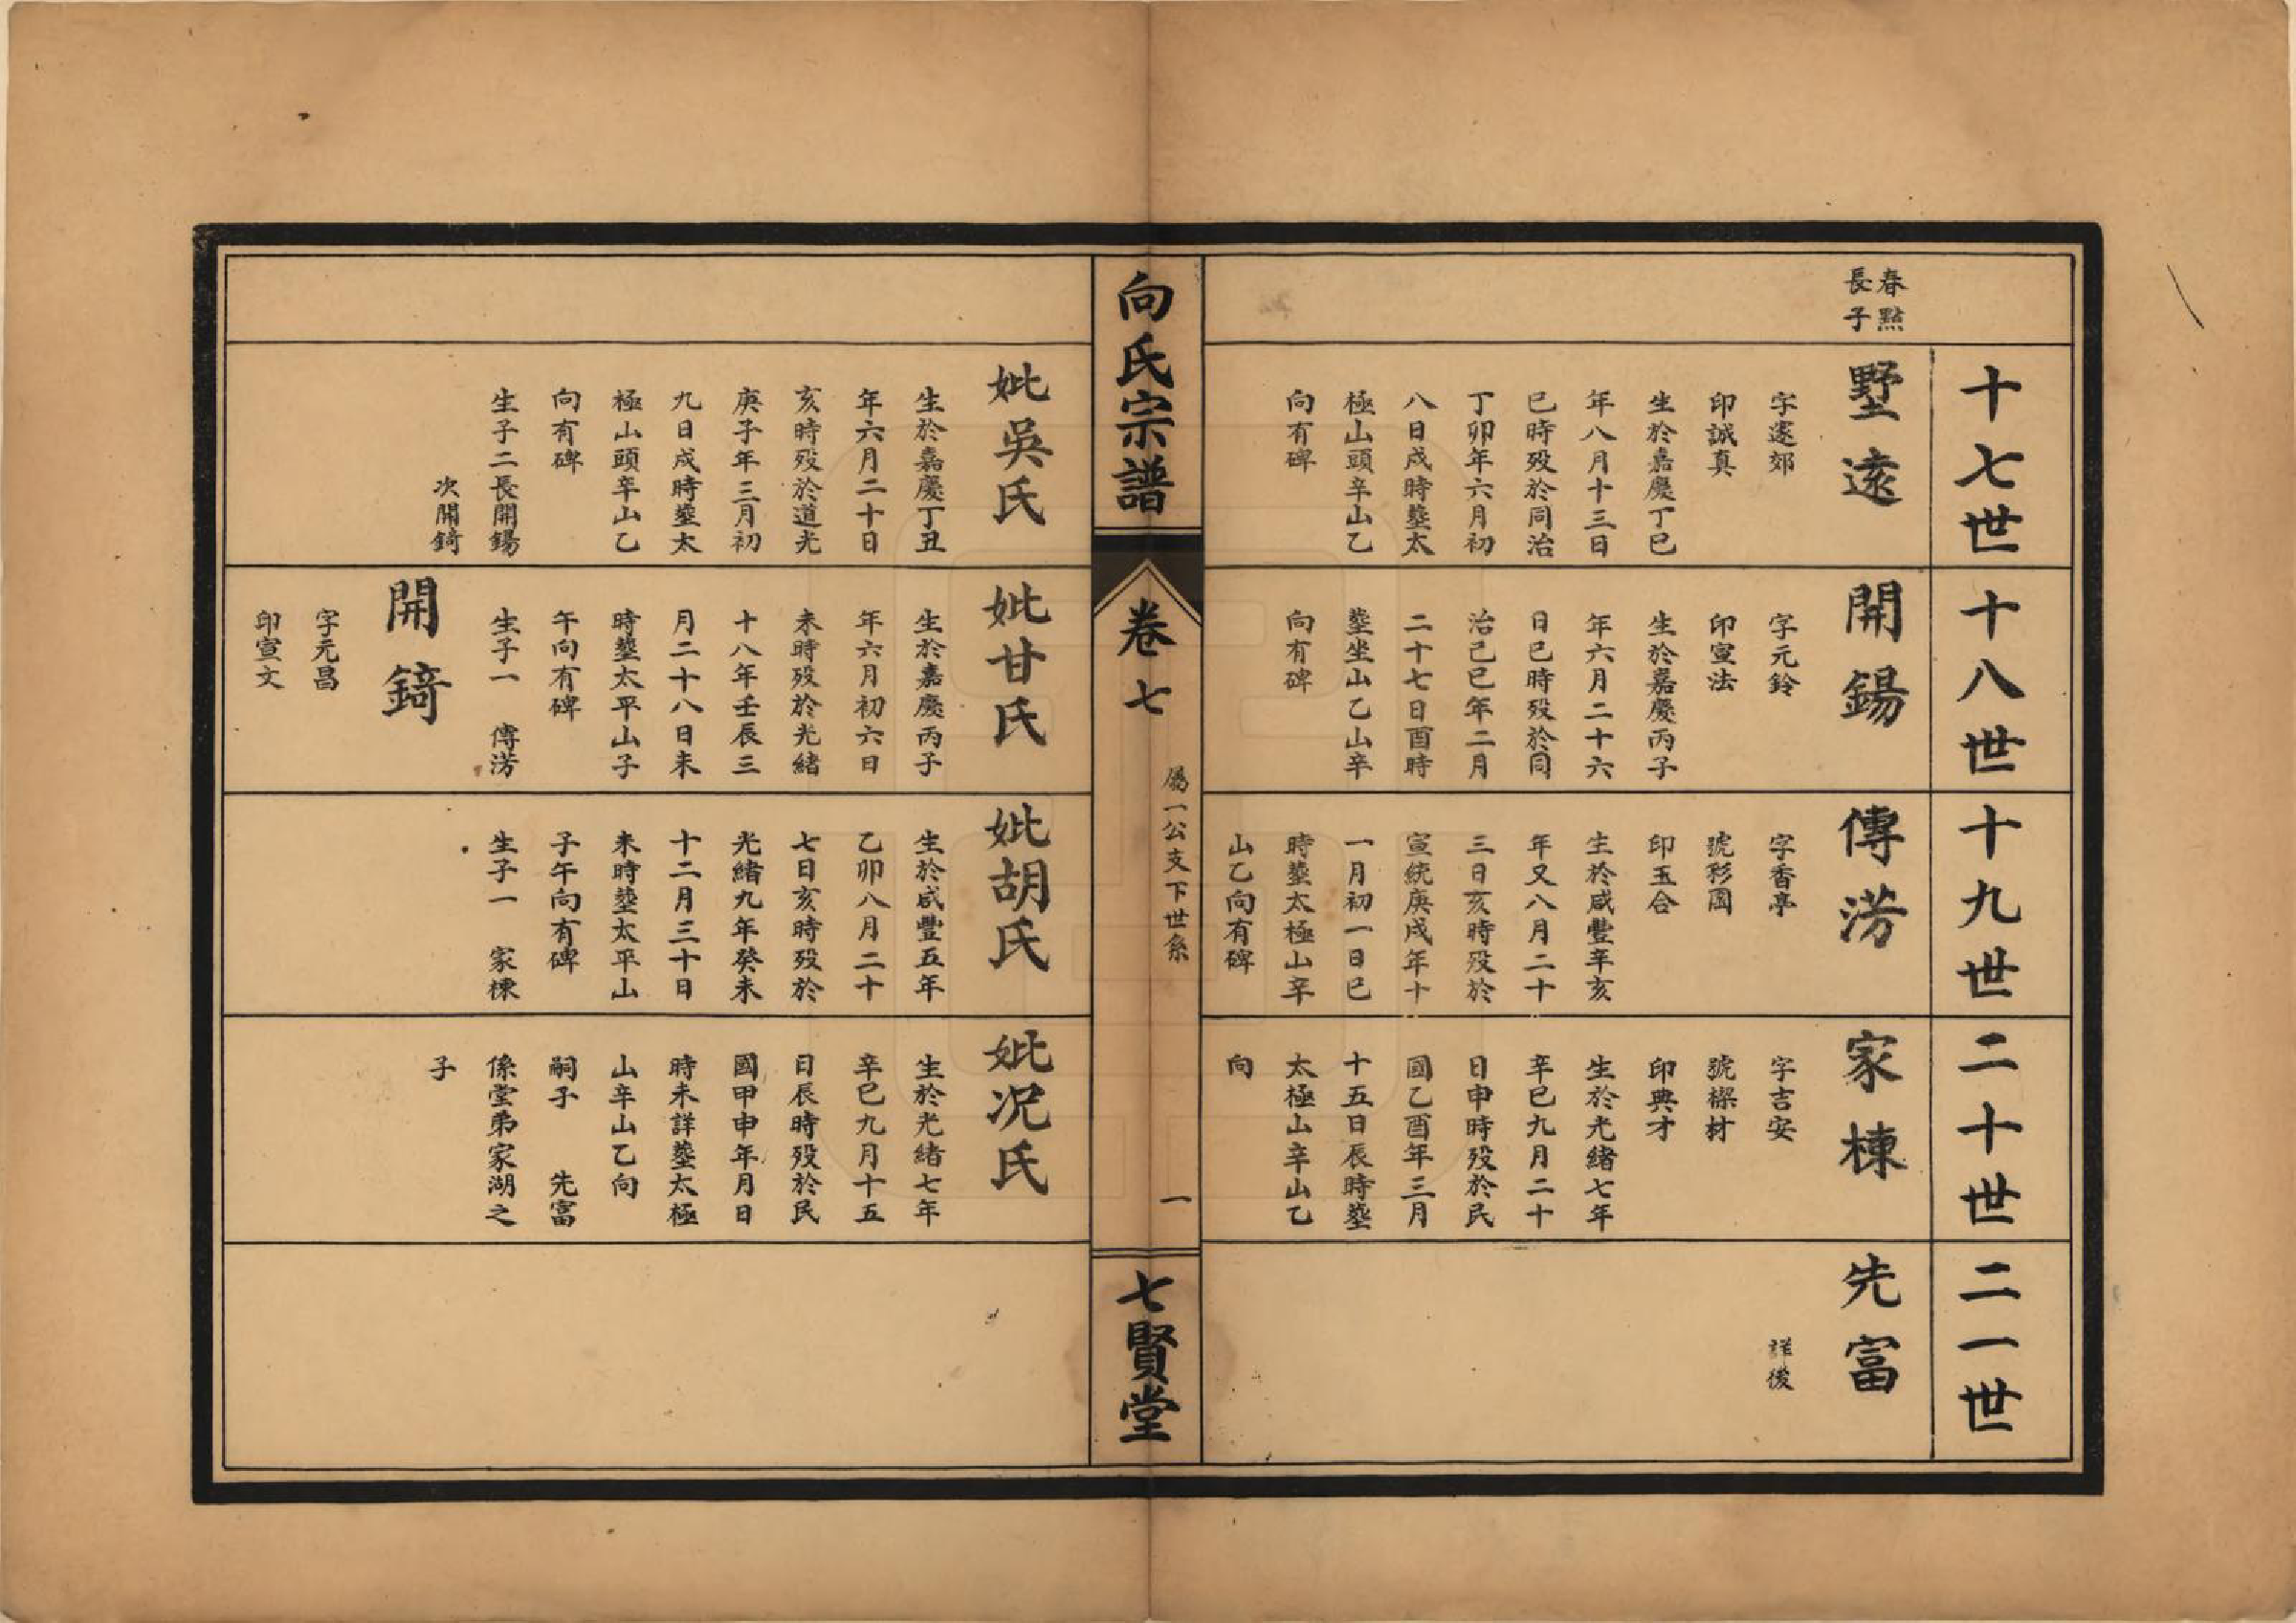 春黙
長子
十七世
墅遠
字邃郊
印誠真
生於嘉慶丁巳
年八月十三日
巳時歿於同治
丁卯年六月初
八日戌時塟太
極山頭辛山乙
向有碑
妣吳氏
生於嘉慶丁丑
年六月二十日
亥時歿於道光
庚子年三月初
九日戌時塟太
極山頭辛山乙
向有碑
生子二長開鍚
次開錡
十八世
開鍚
字元鈴
印宣法
生於嘉慶丙子
年六月二十六
日巳時歿於同
治己巳年二月
二十七日酉時
塟坐山乙山辛
向有碑
妣甘氏
生於嘉慶丙子
年六月初六日
未時歿於光緒
十八年壬辰三
月二十八日未
時塟太平山子
午向有碑
生子一 傳淓
開錡
字元昌
印宣文
十九世
傳淓
字香亭
號彩圃
印玉合
生於咸豐辛亥
年又八月二十
三日亥時歿於
宣統庚戌年十
一月初一日巳
時塟太極山辛
山乙向有碑
妣胡氏
生於咸豐五年
乙卯八月二十
七日亥時歿於
光緒九年癸未
十二月三十日
未時塟太平山
子午向有碑
生子一 家棟
二十世
家棟
字吉安
號樑材
印典才
生於光緒七年
辛巳九月二十
日申時歿於民
國乙酉年三月
十五日辰時塟
太極山辛山乙
向
妣况氏
生於光緒七年
辛巳九月十五
日辰時歿於民
國甲申年月日
時未詳塟太極
山辛山乙向
嗣子 先富
係堂弟家湖之
子
二一世
先富
詳後
向氏宗譜
卷七
屬一公支下世系
一
七賢堂